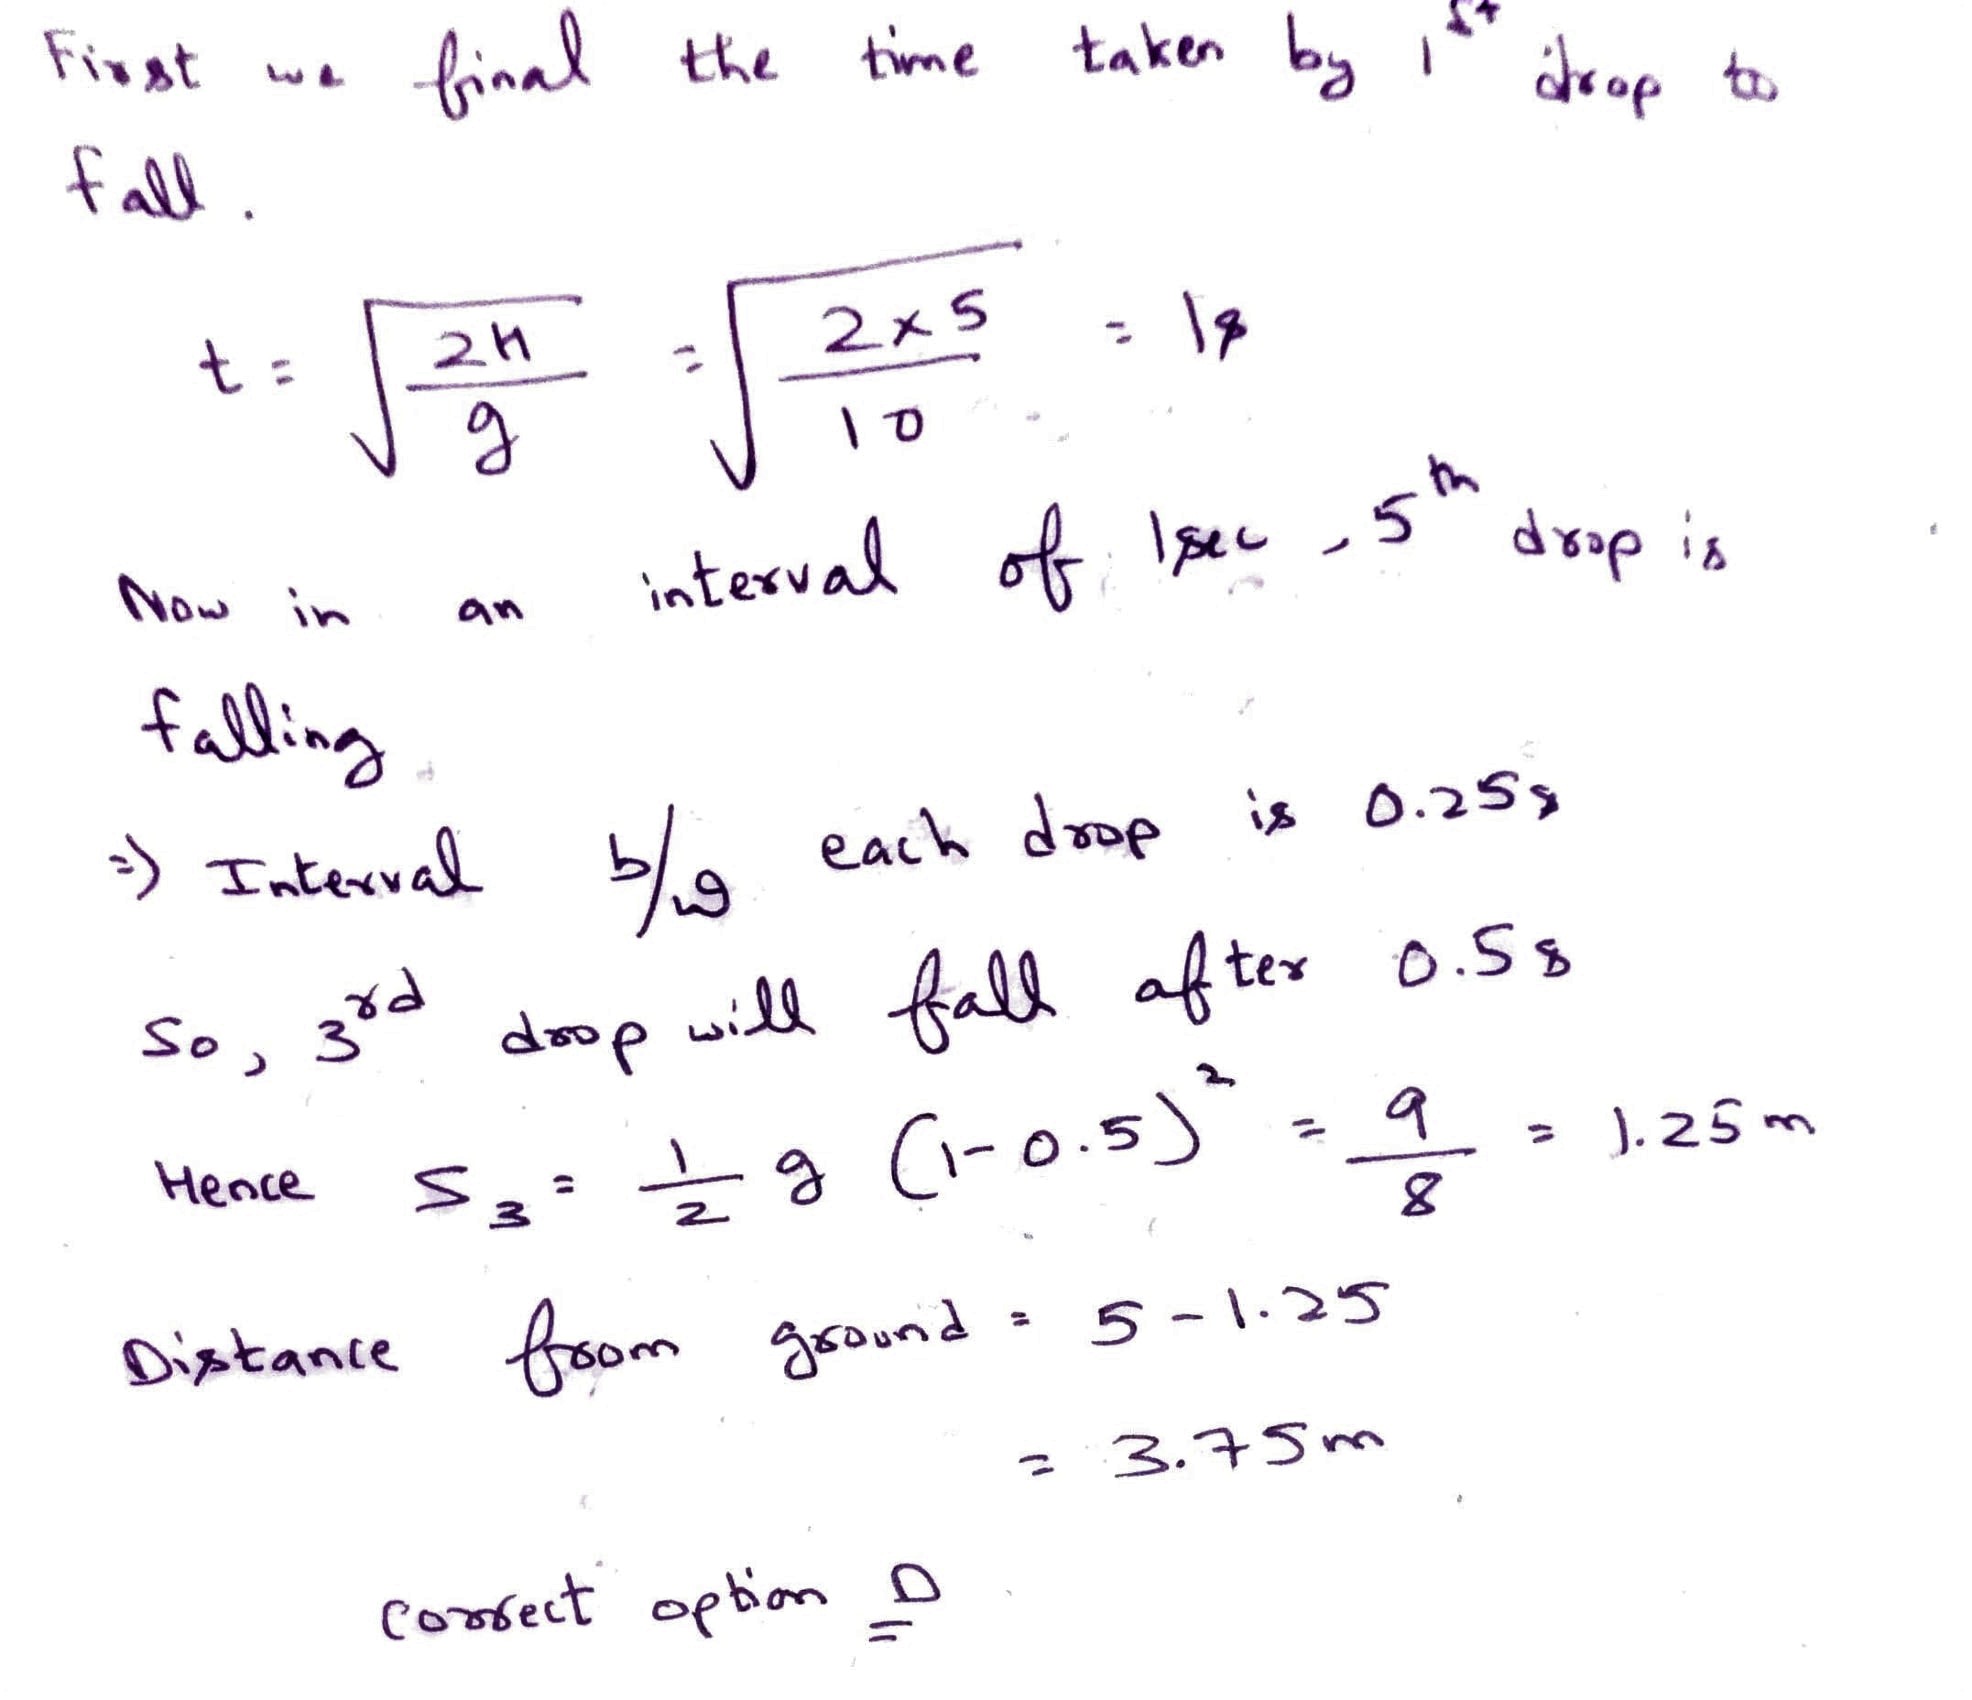 First we final the time taken by 1st drop to
fall.
t = √(2H/g) = √(2×5/10) = 1s
Now in an interval of 1sec, 5th drop is
falling
=) Interval b/w each drop is 0.25s
So, 3rd drop will fall after 0.5s
Hence S₃ = 1/2 g (1-0.5)² = g/8 = 1.25m
Distance from ground = 5-1.25
= 3.75m
correct option D